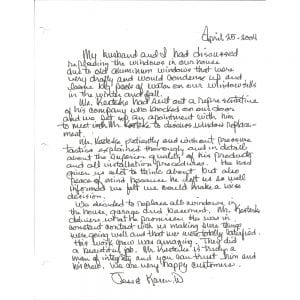 April 25-2004
My husband and I had discussed
replacing the windows in our house
due to old aluminum windows that were
very drafty and would condense up and
leave big pools of water on our windowsills
in the winter and fall.
Mr. Kostecke had sent out a representative
of his company who knocked on our door
and we set up an appointment with him
to meet with Mr. Kostecke to discuss window replace-
ment.
Mr. Kostecke patiently and without presen-
tation explained thorough and in detail
about the superior quality of his products
and all installation procedures. He had
given us alot to think about but also
peace of mind because he let us so well
informed we felt we could make a wise
decision.
We decided to replace all windows in
the house, garage and basement. Mr. Kostecke
delivers what he promises. He was in
constant contact with us making sure things
were going well and that we were totally satisfied.
His work crew was amazing. They did
a beautiful job. Mr. Kostecke is truly a
man of integrity and you can trust him and
his crew. We are very happy customers.
Jose & Karen W